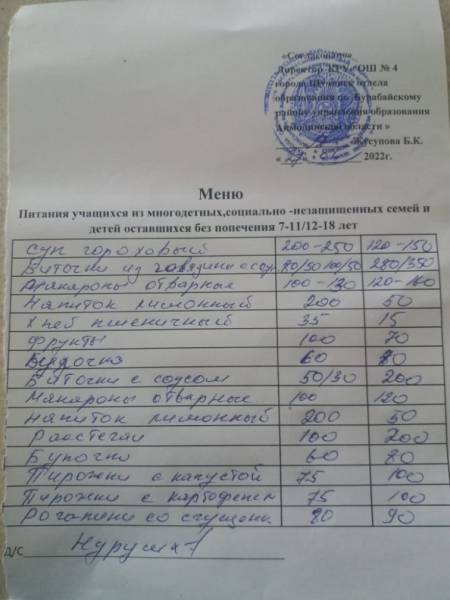 «Согласовано»
Директор КГУ «ОШ № 4
города Щучинск отдела
образования по Бурабайскому
району управления образования
Акмолинской области »
Жусупова Б.К.
2022г.
Меню
Питания учащихся из многодетных,социально -незащишенных семей и
детей оставшихся без попечения 7-11/12-18 лет
Суп гороховый 200-250 120-150
Биточки из говядины с соус 80/50 100/50 280/350
Макароны отварные 100-130 120-160
Напиток лимонный 200 50
Хлеб пшеничный 35 15
Фрукты 100 70
Булочка 60 80
Биточки с соусом 50/30 200
Макароны отварные 100 120
Напиток лимонный 200 50
Расстегаи 100 200
Булочка 60 80
Пирожки с капустой 75 100
Пирожки с картофелем 75 100
Рогалики со сгущенк 80 90
Д/С